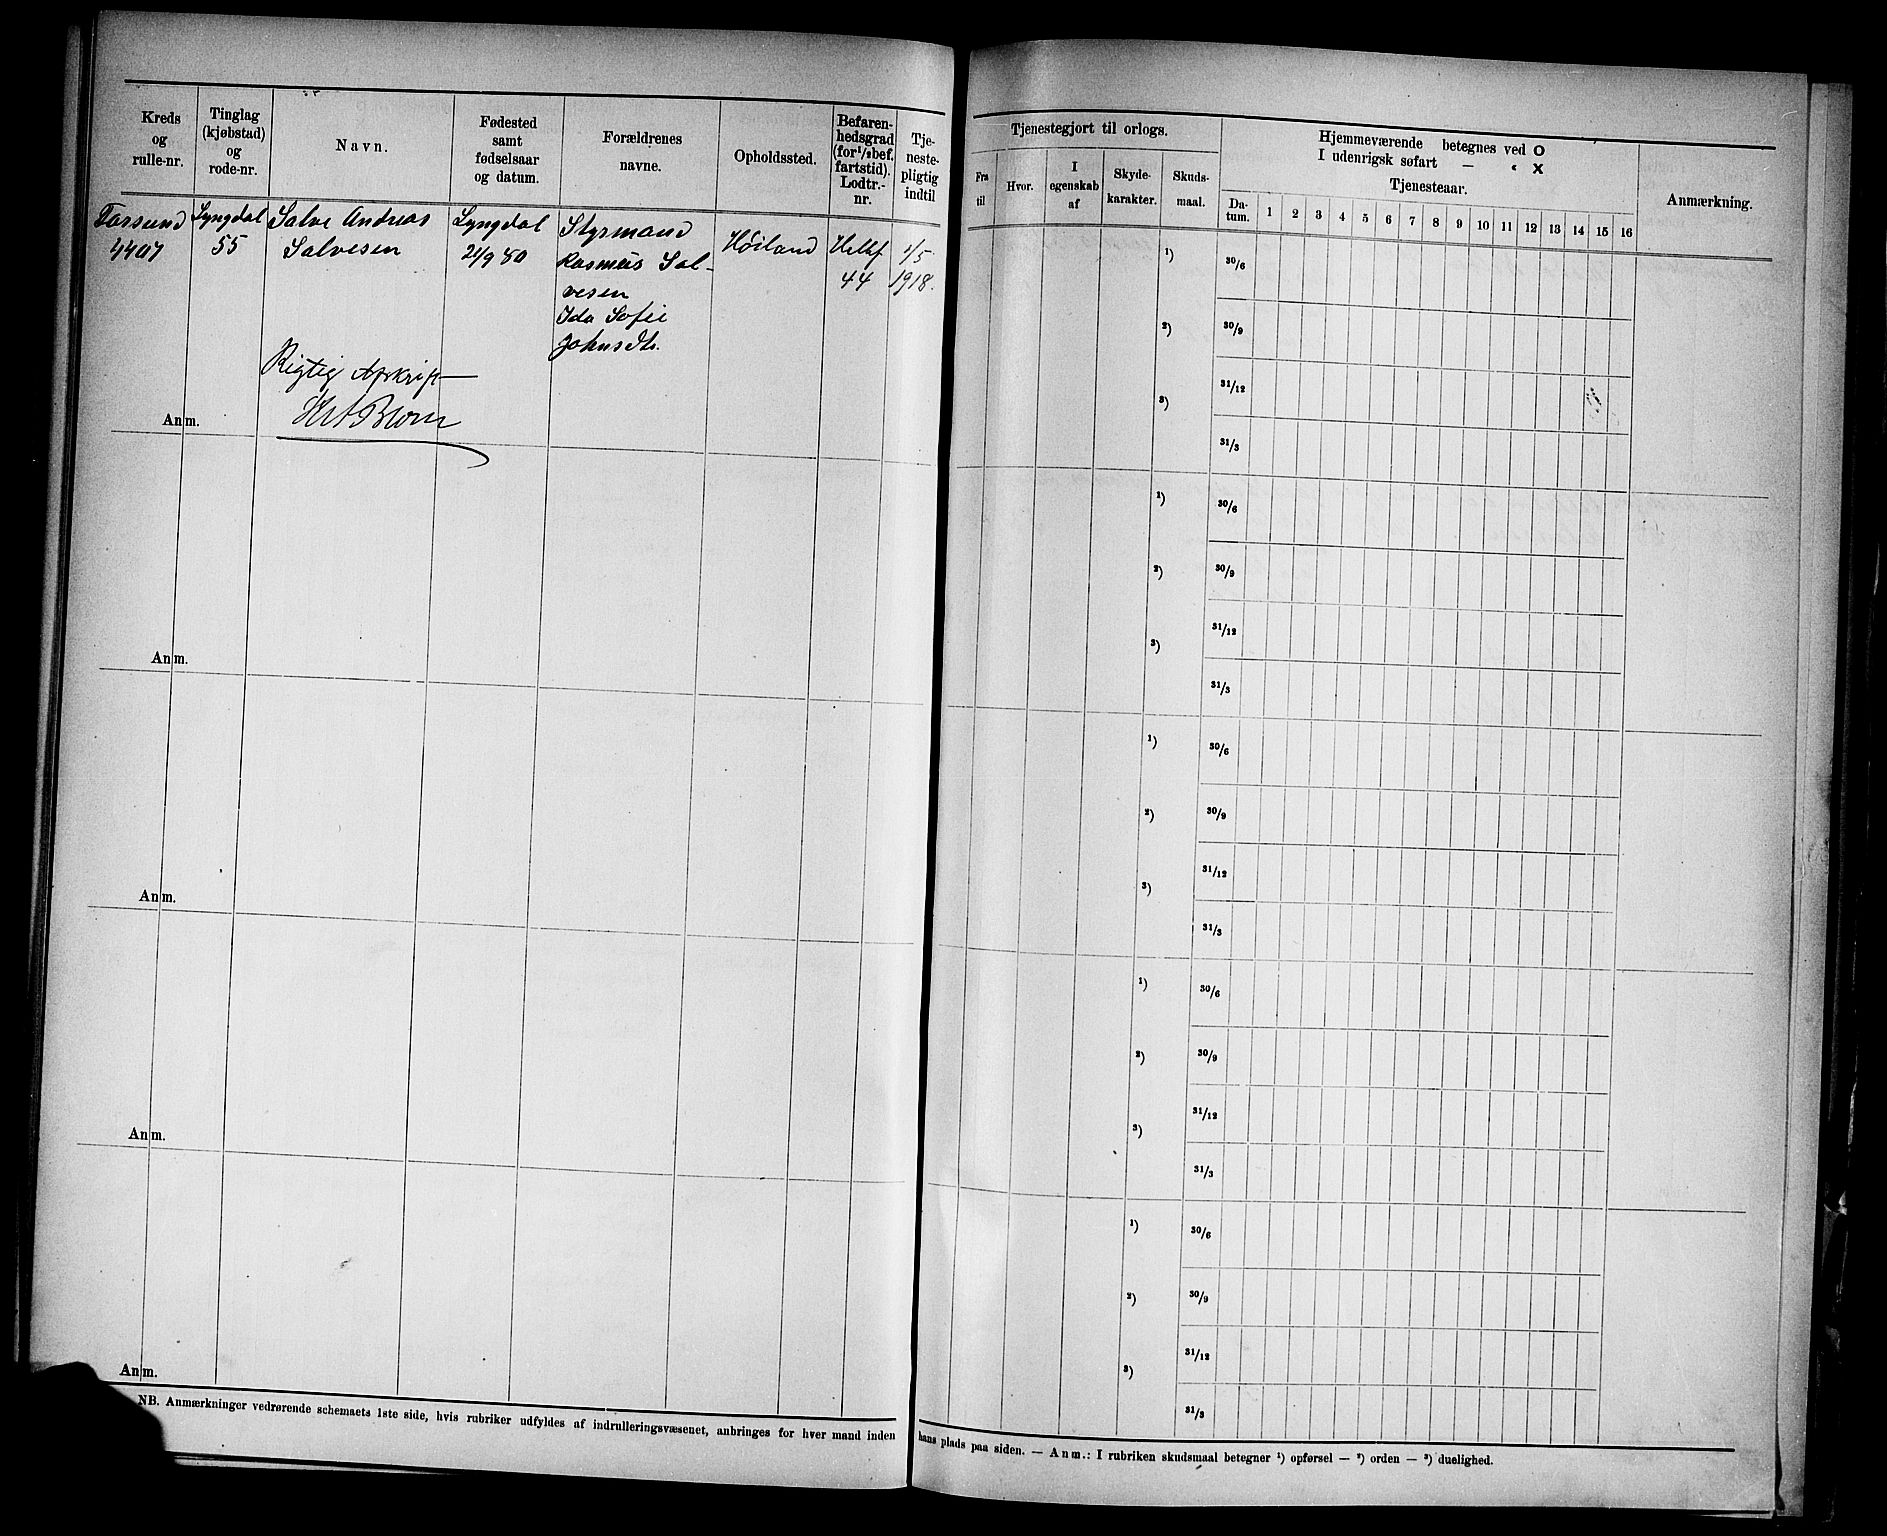 Kreds
og
rulle-nr.
Tinglag
(kjøbstad)
og
rode-nr.
Navn.
Fødested
samt
fødselsaar
og datum.
Forældrenes
navne.
Opholdssted.
Befaren-
hedsgrad
(for ½ bef.
fartstid).
Lodtr.-
nr.
Tje-
neste-
pligtig
indtil
Farsund
4407
Lyngdal
55
Salve Andreas
Salvesen
Lyngdal
21/9 80
Styrmand
Rasmus Sal-
vesen
Ida Sofie
Johnsdtr.
Høiland
Helbf
44
1/5
1918.
Rigtig Afskrift
Anm.
Anm.
Anm.
Anm.
Anm.
NB. Anmærkninger vedrørende schemaets 1ste side, hvis rubriker udfyldes af indrulleringsvæsenet, anbringes for hver mand inden
Tjenestegjort til orlogs.
Fra
til
Hvor.
I
egenskab
af
Skyde-
karakter.
Skuds-
maal.
Hjemmeværende betegnes ved O
I udenrigsk søfart — « X
Tjenesteaar.
Da-
tum.
1 2 3 4 5 6 7 8 9 10 11 12 13 14 15 16
Anmærkning.
¹) 30/6
²) 30/9
31/12
³)
31/3
¹) 30/6
²) 30/9
31/12
³)
31/3
¹) 30/6
²) 30/9
31/12
³)
31/3
¹) 30/6
²) 30/9
31/12
³)
31/3
¹) 30/6
²) 30/9
31/12
³)
31/3
hans plads paa siden. — Anm.: I rubriken skudsmaal betegner ¹) opførsel — ²) orden — ³) duelighed.